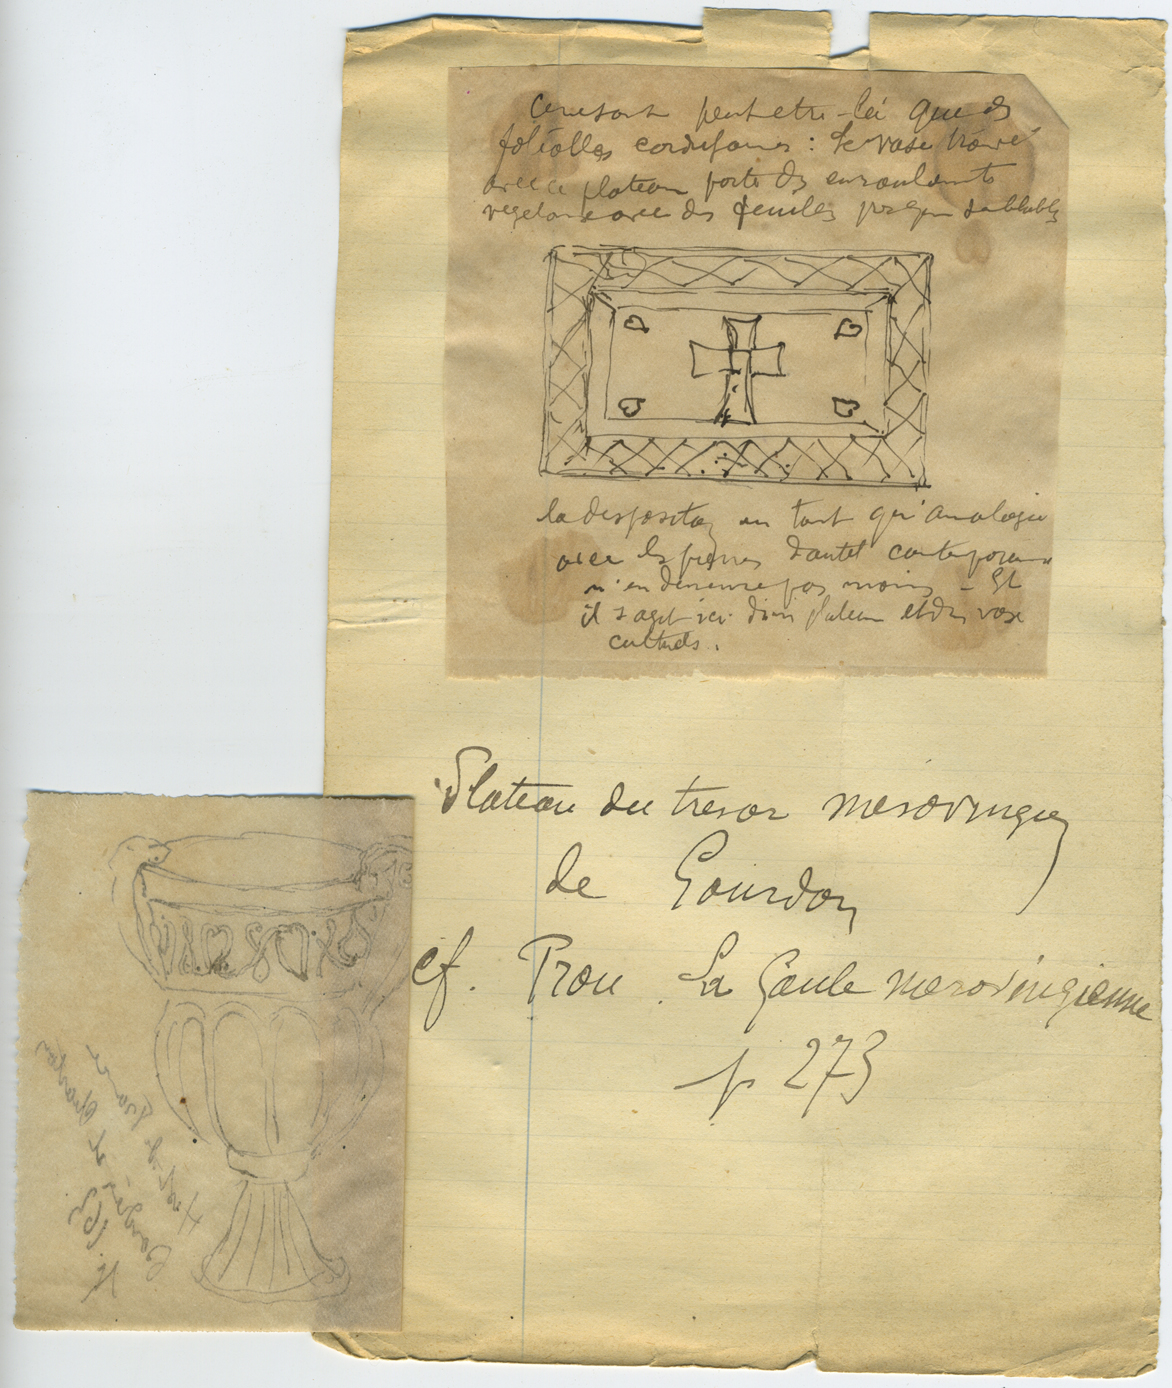 Ce ne sont peut etre ici que des
folioles cordiformes : le vase trouvé
avec ce plateau porte des enroulements
vegetaux avec des feuilles presque semblables
la disposition en tant qu'analogie
avec les pierres d'autel contemporaines
n'en demeure pas moins - Et
il s'agit ici d'un plateau et d'un vase
cultuels.
Plateau du tresor merovingien
de Gourdon
cf. Prou. La Gaule merovingienne
p 273